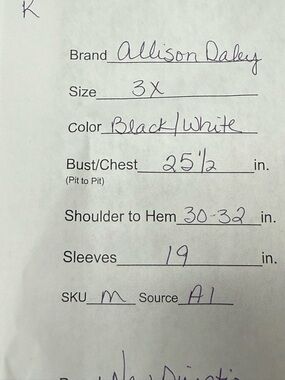 K
Brand Allison Daley
Size 3X
Color Black/White
Bust/Chest 25 1/2 in.
(Pit to Pit)
Shoulder to Hem 30-32 in.
Sleeves 19 in.
SKU M Source A1